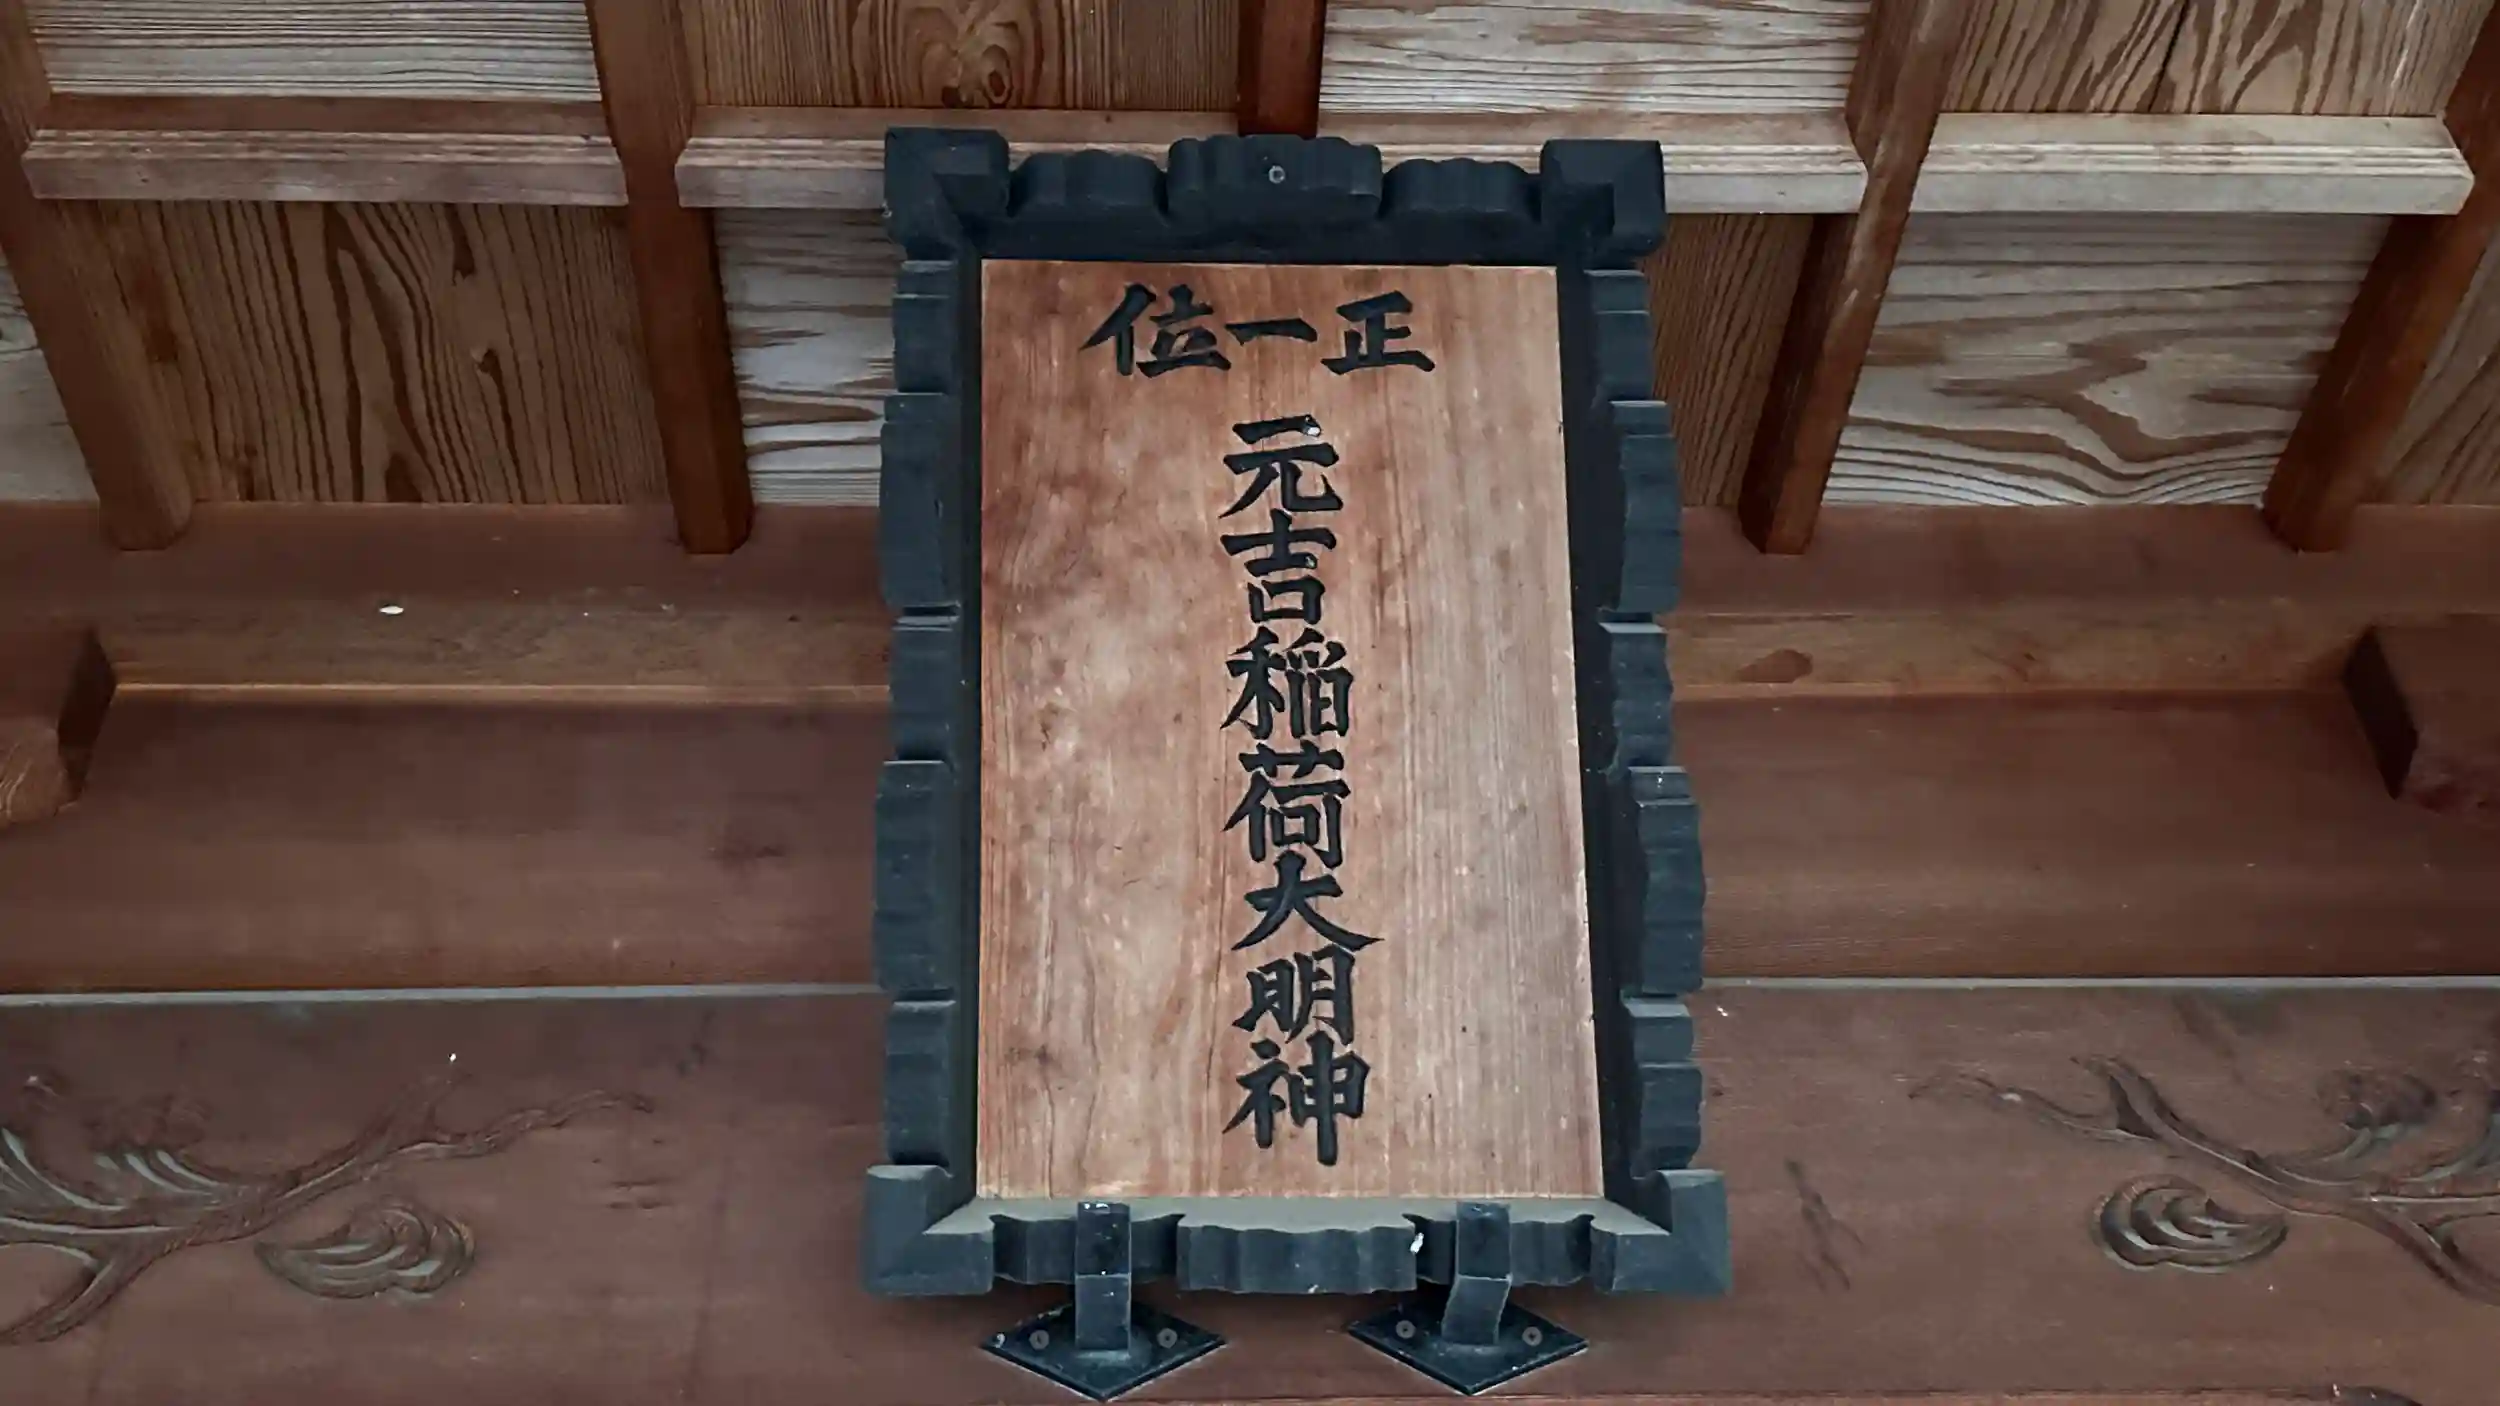 正一位
元吉稲荷大明神